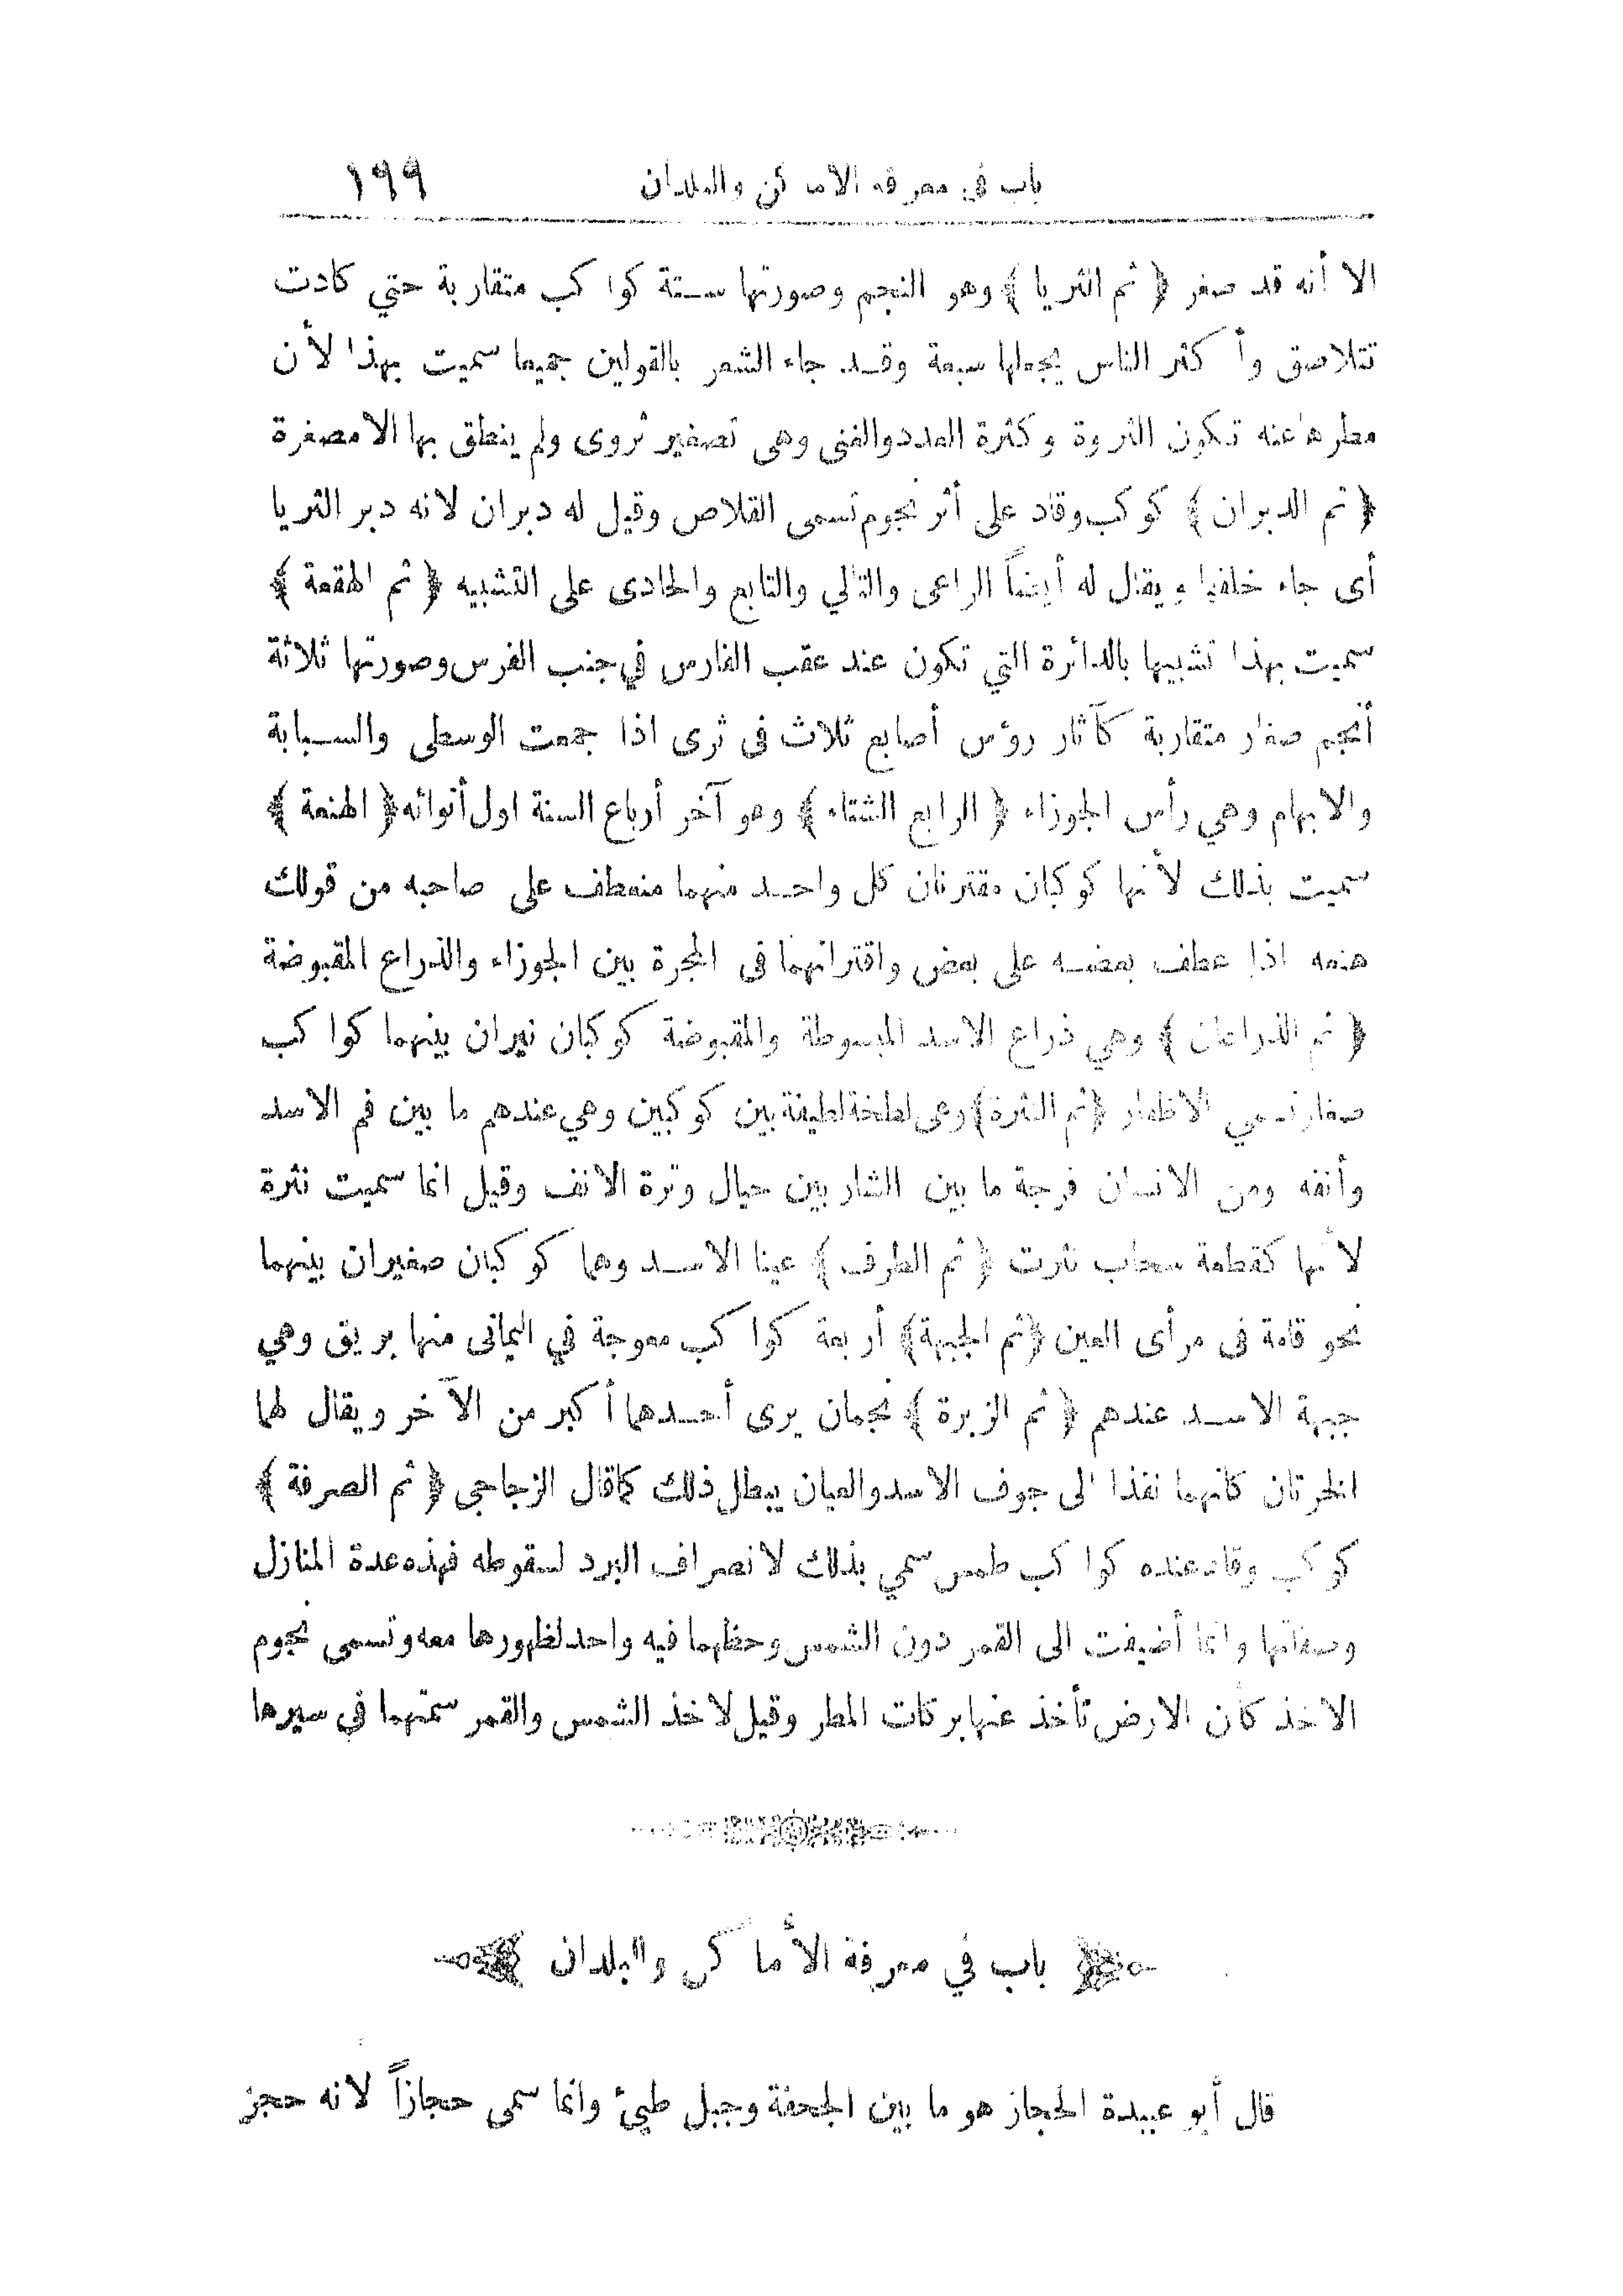 باب في معرفة الاماكن والبلدان ١٩٩
الا أنه قد صغر ﴿ ثم الثريا ﴾ وهو النجم وصورتها ستة كواكب متقاربة حتي كادت
تتلاصق وأكثر الناس يجعلها سبعة وقد جاء الشعر بالقولين جميعا سميت بهذا لأن
مطرها عنه تكون الثروة وكثرة العدد والغنى وهى تصغير ثروى ولم ينطق بها الا مصغرة
﴿ ثم الدبران ﴾ كوكب وقاد على أثر نجوم تسمى القلاص وقيل له دبران لانه دبر الثريا
أى جاء خلفها ويقال له أيضاً الراعى والتالي والتابع والحادى على التشبيه ﴿ ثم الهقعة ﴾
سميت بهذا تشبيها بالدائرة التي تكون عند عقب الفارس في جنب الفرس وصورتها ثلاثة
أنجم صغار متقاربة كآثار رؤس أصابع ثلاث فى ثرى اذا جمعت الوسطى والسبابة
والابهام وهي رأس الجوزاء ﴿ الرابع الشتاء ﴾ وهو آخر أرباع السنة اول أنوائه ﴿ الهنعة ﴾
سميت بذلك لأنها كوكبان مقترنان كل واحد منهما منعطف على صاحبه من قولك
هنعه اذا عطف بعضه على بعض واقترانهما فى المجرة بين الجوزاء والذراع المقبوضة
﴿ ثم الذراعان ﴾ وهي ذراع الاسد المبسوطة والمقبوضة كوكبان نيران بينهما كواكب
صغار تسمي الاظفار ﴿ ثم النثرة ﴾ وهى لطخة لطيفة بين كوكبين وهي عندهم ما بين فم الاسد
وأنفه ومن الانسان فرجة ما بين الشاربين حيال وترة الانف وقيل انما سميت نثرة
لأنها كقطعة سحاب نثرت ﴿ ثم الطرف ﴾ عينا الاسد وهما كوكبان صغيران بينهما
نحو قامة فى مرأى العين ﴿ ثم الجبهة ﴾ أربعة كواكب معوجة في اليمانى منها بريق وهي
جبهة الاسد عندهم ﴿ ثم الزبرة ﴾ نجمان يرى أحدهما أكبر من الآخر ويقال لهما
الخرتان كانهما نفذا الى جوف الاسد والعيان يبطل ذلك كما قال الزجاجى ﴿ ثم الصرفة ﴾
كوكب وقاد عنده كواكب طمس سمي بذلك لانصراف البرد لسقوطه فهذه عدة المنازل
وصفاتها وانما أضيفت الى القمر دون الشمس وحظهما فيه واحد لظهورها معه وتسمى نجوم
الاخذ كأن الارض تأخذ عنها بركات المطر وقيل لاخذ الشمس والقمر سمتهما في سيرها
باب في معرفة الأماكن والبلدان
قال أبو عبيدة الحجاز هو ما بين الجحفة وجبل طيئ وانما سمى حجازاً لانه حجز